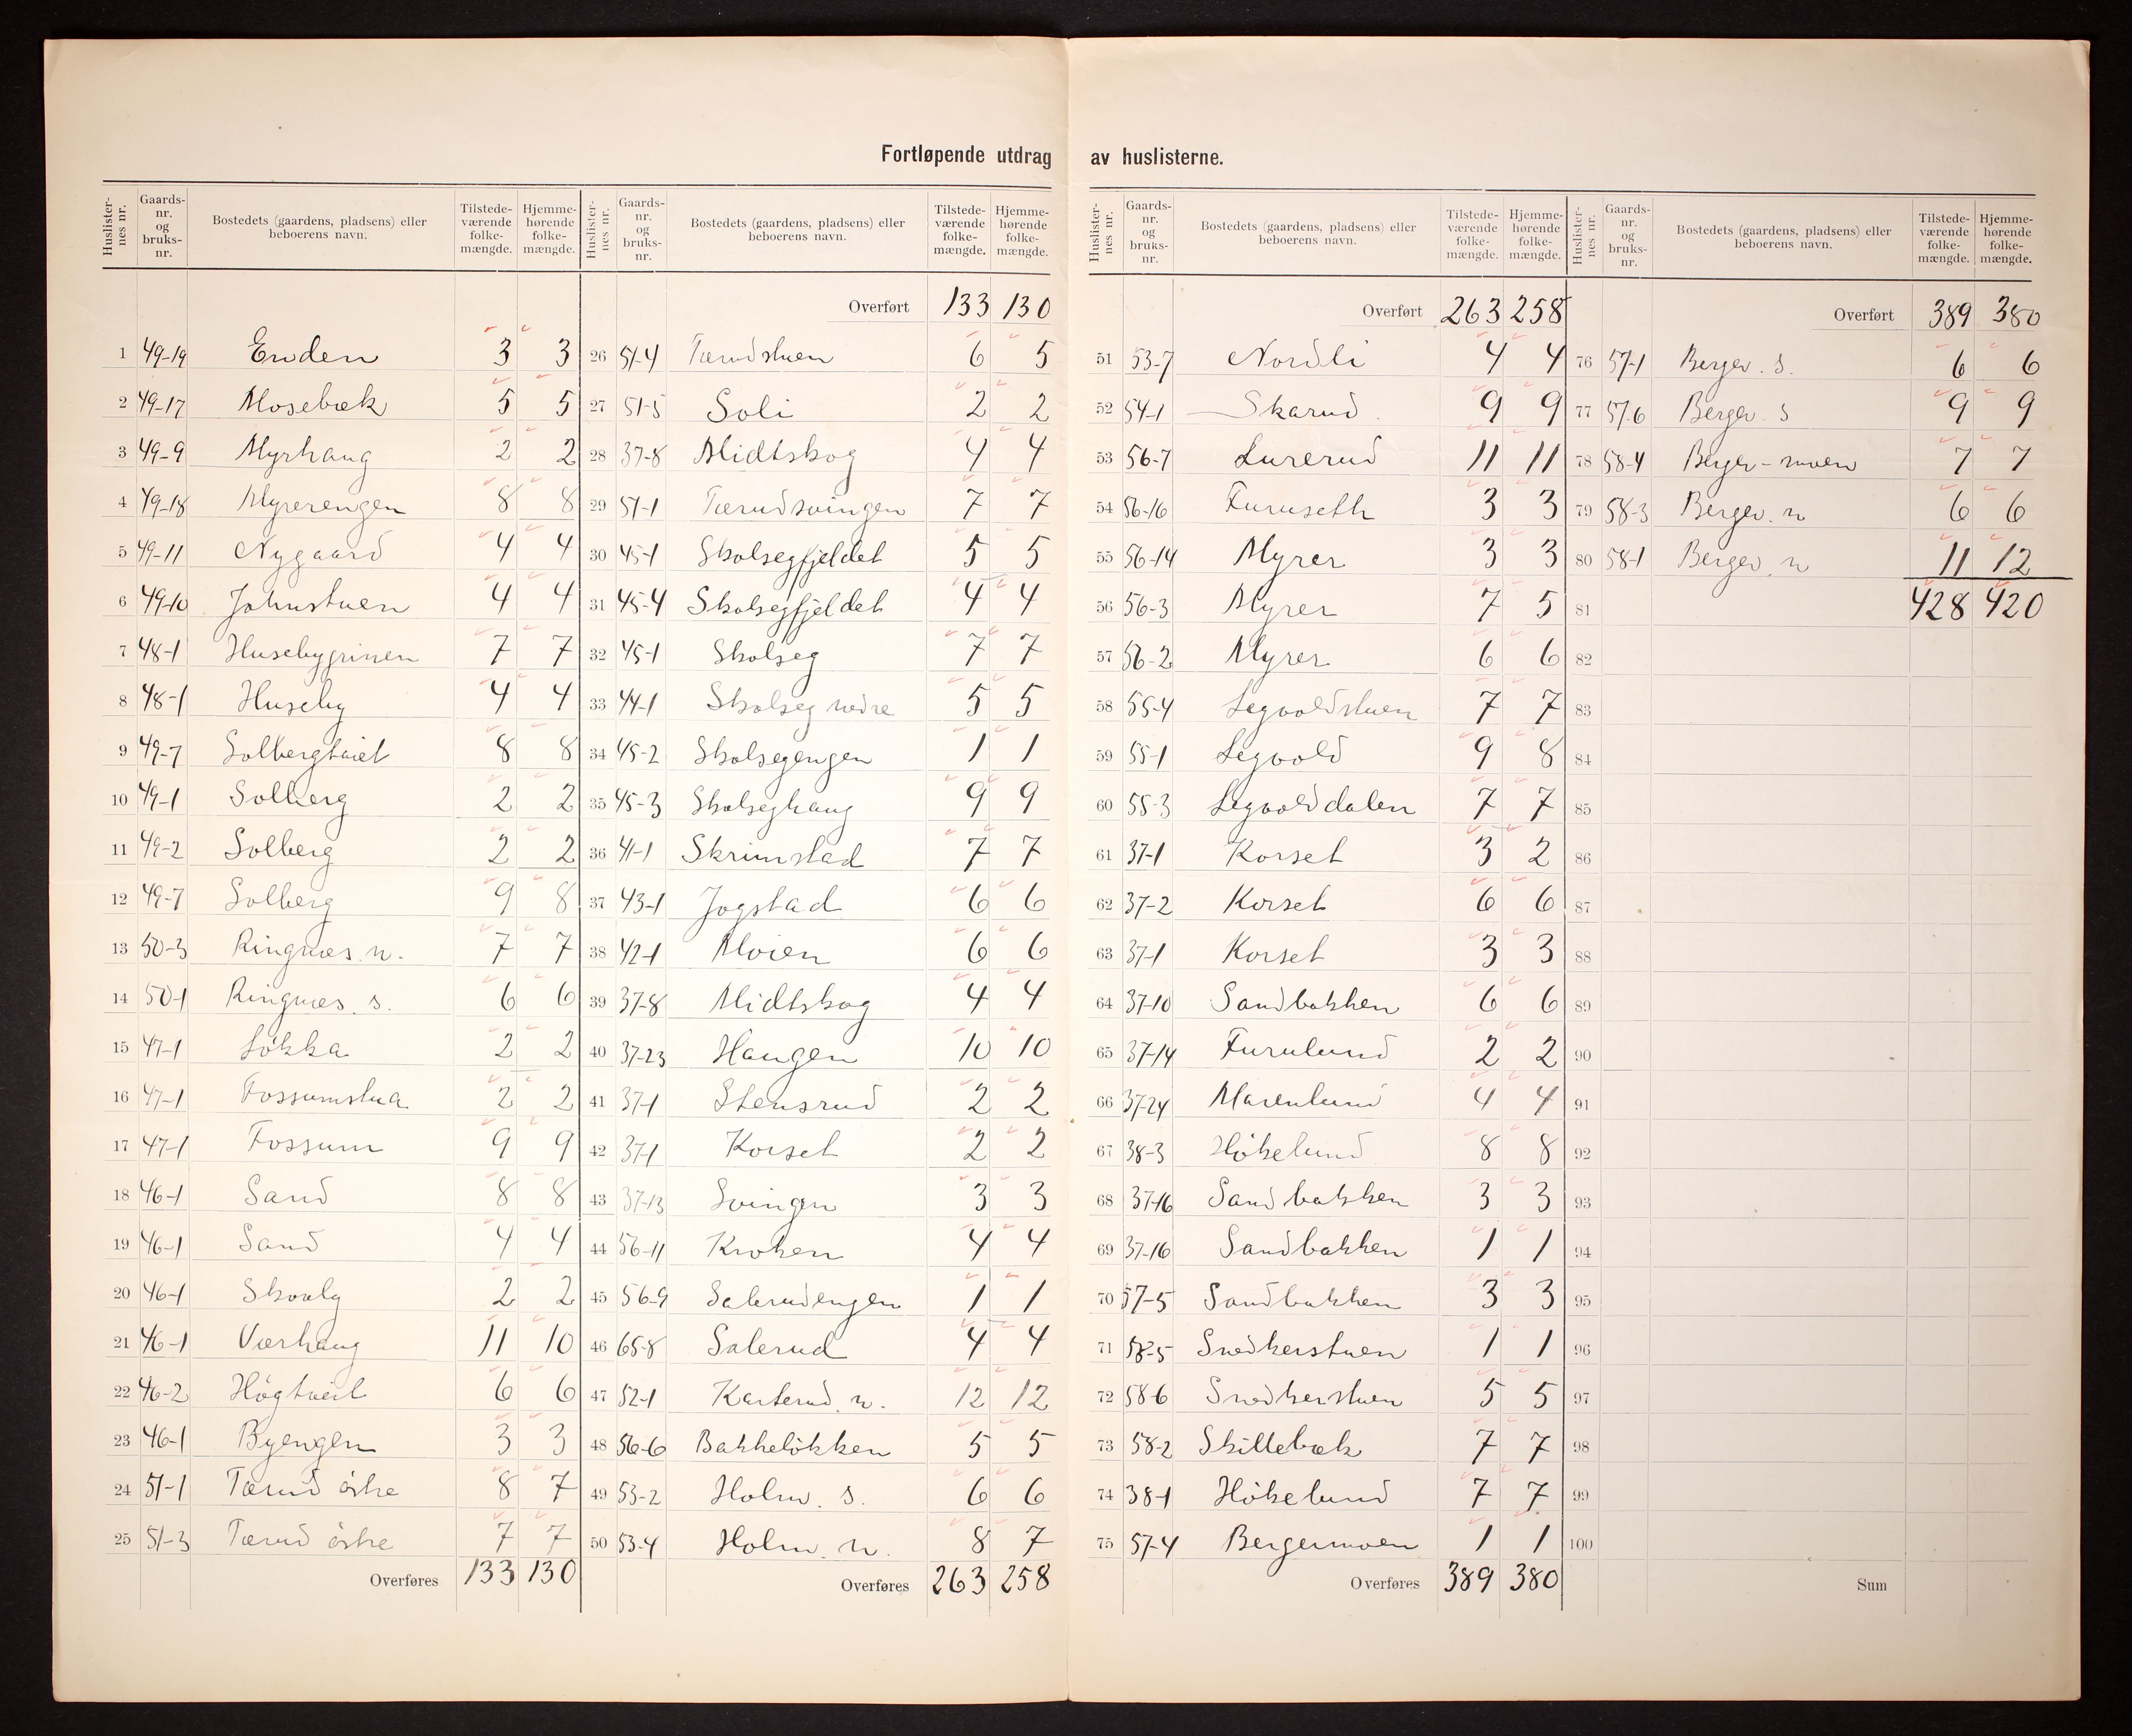 Fortløpende utdrag av huslisterne.
Huslister-nes nr. Gaards-nr. og bruks-nr. Bostedets (gaardens, pladsens) eller beboerens navn. Tilstede-værende folke-mængde. Hjemme-hørende folke-mængde.
1 49-19 Enden 3 3
2 49-17 Mosebæk 5 5
3 49-9 Myrhaug 2 2
4 49-18 Myrerengen 8 8
5 49-11 Nygaard 4 4
6 49-10 Johnstuen 4 4
7 48-1 Husebygrinen 7 7
8 48-1 Huseby 4 4
9 49-7 Solbergtviet 8 8
10 49-1 Solberg 2 2
11 49-2 Solberg 2 2
12 49-7 Solberg 9 8
13 50-3 Ringnæs n. 7 7
14 50-1 Ringnæs. s. 6 6
15 47-1 Lökka 2 2
16 47-1 Fossumstua 2 2
17 47-1 Fossum 9 9
18 46-1 Sand 8 8
19 46-1 Sand 4 4
20 46-1 Skovly 2 2
21 46-1 Værhaug 11 10
22 46-2 Högtveit 6 6
23 46-1 Byengen 3 3
24 51-1 Tærud östre 8 7
25 51-3 Tærud östre 7 7
Overføres 133 130
Huslister-nes nr. Gaards-nr. og bruks-nr. Bostedets (gaardens, pladsens) eller beboerens navn. Tilstede-værende folke-mængde. Hjemme-hørende folke-mængde.
Overført 133 130
26 51-4 Tærudstuen 6 5
27 51-5 Soli 2 2
28 37-8 Midtskog 4 4
29 51-1 Tærudsvingen 7 7
30 45-1 Skolsegfjeldet 5 5
31 45-4 Skolsegfjeldet 4 4
32 45-1 Skolseg 7 7
33 44-1 Skolseg nedre 5 5
34 45-2 Skolsegengen 1 1
35 45-3 Skolseghaug 9 9
36 41-1 Skrimstad 7 7
37 43-1 Jogstad 6 6
38 42-1 Moien 6 6
39 37-8 Midtskog 4 4
40 37-23 Haugen 10 10
41 37-1 Stensrud 2 2
42 37-1 Korset 2 2
43 37-13 Svingen 3 3
44 56-11 Kroken 4 4
45 56-9 Salerudengen 1 1
46 65-8 Salerud 4 4
47 52-1 Karterud. n. 12 12
48 56-6 Bakkelökken 5 5
49 53-2 Holm. s. 6 6
50 53-4 Holm. n. 8 7
Overføres 263 258
Huslister-nes nr. Gaards-nr. og bruks-nr. Bostedets (gaardens, pladsens) eller beboerens navn. Tilstede-værende folke-mængde. Hjemme-hørende folke-mængde.
Overført 263 258
51 53-7 Nordli 4 4
52 54-1 Skarud. 9 9
53 56-7 Lurerud 11 11
54 56-16 Furuseth 3 3
55 56-14 Myrer 3 3
56 56-3 Myrer 7 5
57 56-2 Myrer 6 6
58 55-4 Legvoldstuen 7 7
59 55-1 Legvold 9 8
60 55-3 Legvolddalen 7 7
61 37-1 Korset 3 2
62 37-2 Korset 6 6
63 37-1 Korset 3 3
64 37-10 Sandbakken 6 6
65 37-14 Furulund 2 2
66 37-24 Marenlund 4 4
67 38-3 Hökelund 8 8
68 37-16 Sandbakken 3 3
69 37-16 Sandbakken 1 1
70 57-5 Sandbakken 3 3
71 58-5 Snedkerstuen 1 1
72 58-6 Snedkerstuen 5 5
73 58-2 Skillebæk 7 7
74 38-1 Hökelund 7 7
75 57-4 Bergermoen 1 1
Overføres 389 380
Huslister-nes nr. Gaards-nr. og bruks-nr. Bostedets (gaardens, pladsens) eller beboerens navn. Tilstede-værende folke-mængde. Hjemme-hørende folke-mængde.
Overført 389 380
76 57-1 Berger. s. 6 6
77 57-6 Berger. s 9 9
78 58-4 Berger-moen 7 7
79 58-3 Berger. n 6 6
80 58-1 Berger. n 11 12
81 428 420
82
83
84
85
86
87
88
89
90
91
92
93
94
95
96
97
98
99
100
Sum